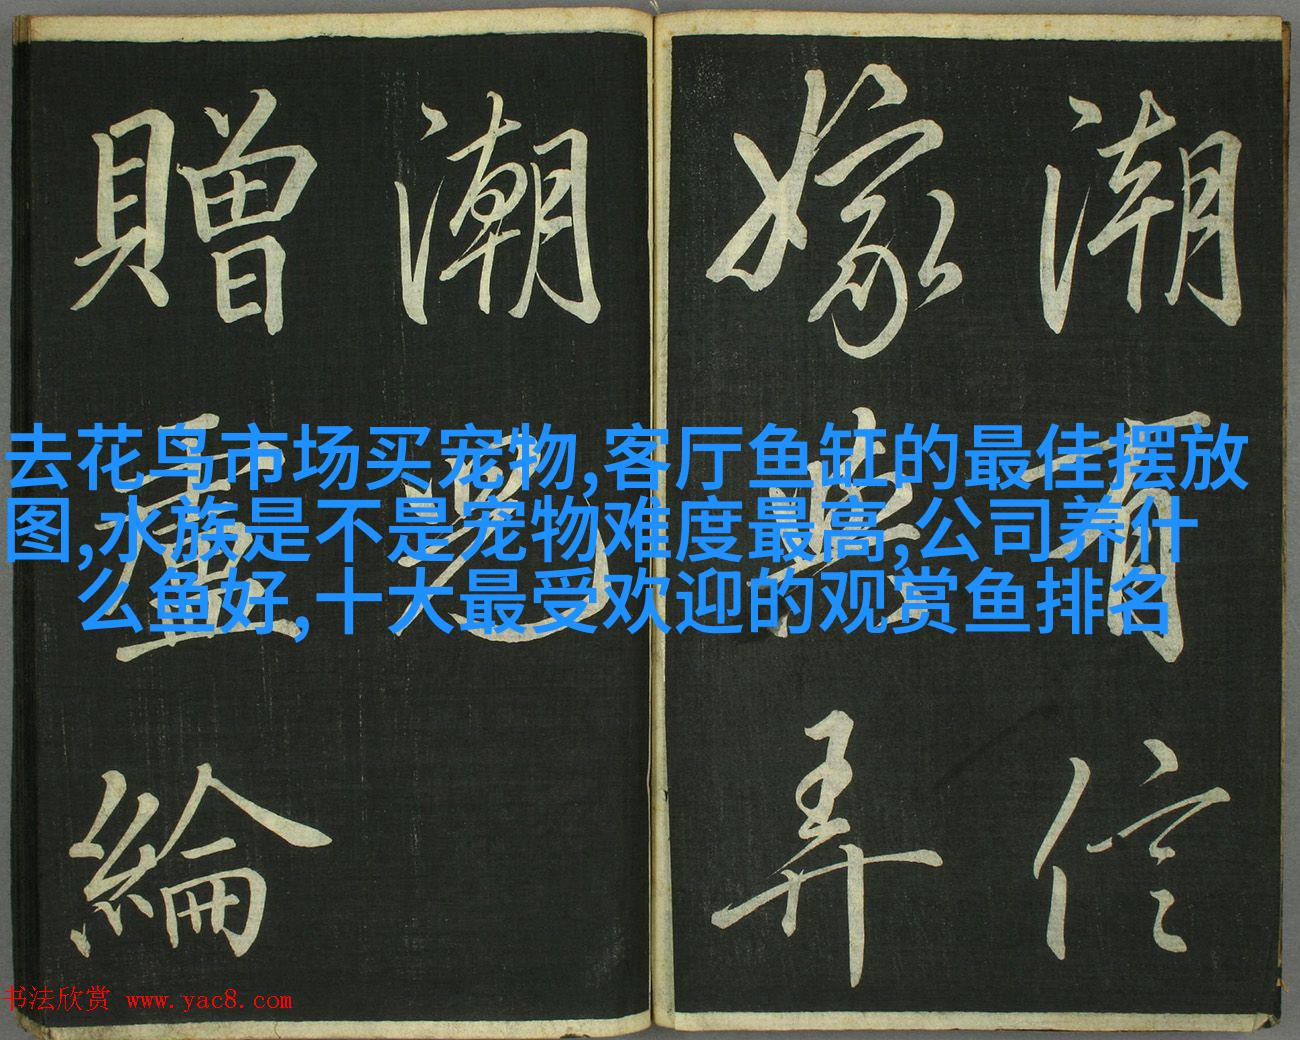 潮有信
嫁與弄
潮兒
贈盧綸
去花鸟市场买宠物,客厅鱼缸的最佳摆放
图,水族是不是宠物难度最高,公司养什
么鱼好,十大最受欢迎的观赏鱼排名
书法欣赏 www.yac8.com